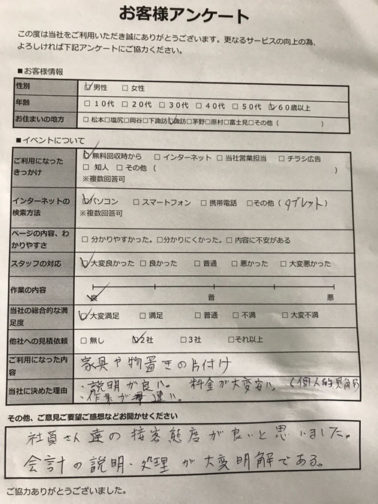 お客様アンケート
この度は当社をご利用いただき誠にありがとうございます。更なるサービスの向上の為、
よろしければ下記アンケートにご協力ください。
■お客様情報
性別 ☑男性 □女性
年齢 □10代 □20代 □30代 □40代 □50代 ☑60歳以上
お住まいの地方 □松本□塩尻□岡谷□下諏訪☑諏訪□茅野□原村□富士見□その他( )
■イベントについて
ご利用になったきっかけ ☑無料回収時から □インターネット □当社営業担当 □チラシ広告
□知人 □その他( )
※複数回答可
インターネットの検索方法 ☑パソコン □スマートフォン □携帯電話 □その他(タブレット)
※複数回答可
ページの内容、わかりやすさ □分かりやすかった。□分かりにくかった。□内容に不安がある
スタッフの対応 ☑大変良かった □良かった □普通 □悪かった □大変悪かった
作業の内容 良 普 悪
当社の総合的な満足度 ☑大変満足 □満足 □普通 □不満 □大変不満
他社への見積依頼 □無し ☑2社 □3社 □それ以上
ご利用になった内容 家具や物置きの片付け
当社に決めた理由 ・説明が良い。 料金が大変安い。
・作業が 速い。
その他、ご意見ご要望ご感想などお聞かせください
社員さん達の接客態度が良いと思いました。
会計の説明・処理が大変明解である。
ご協力ありがとうございました。